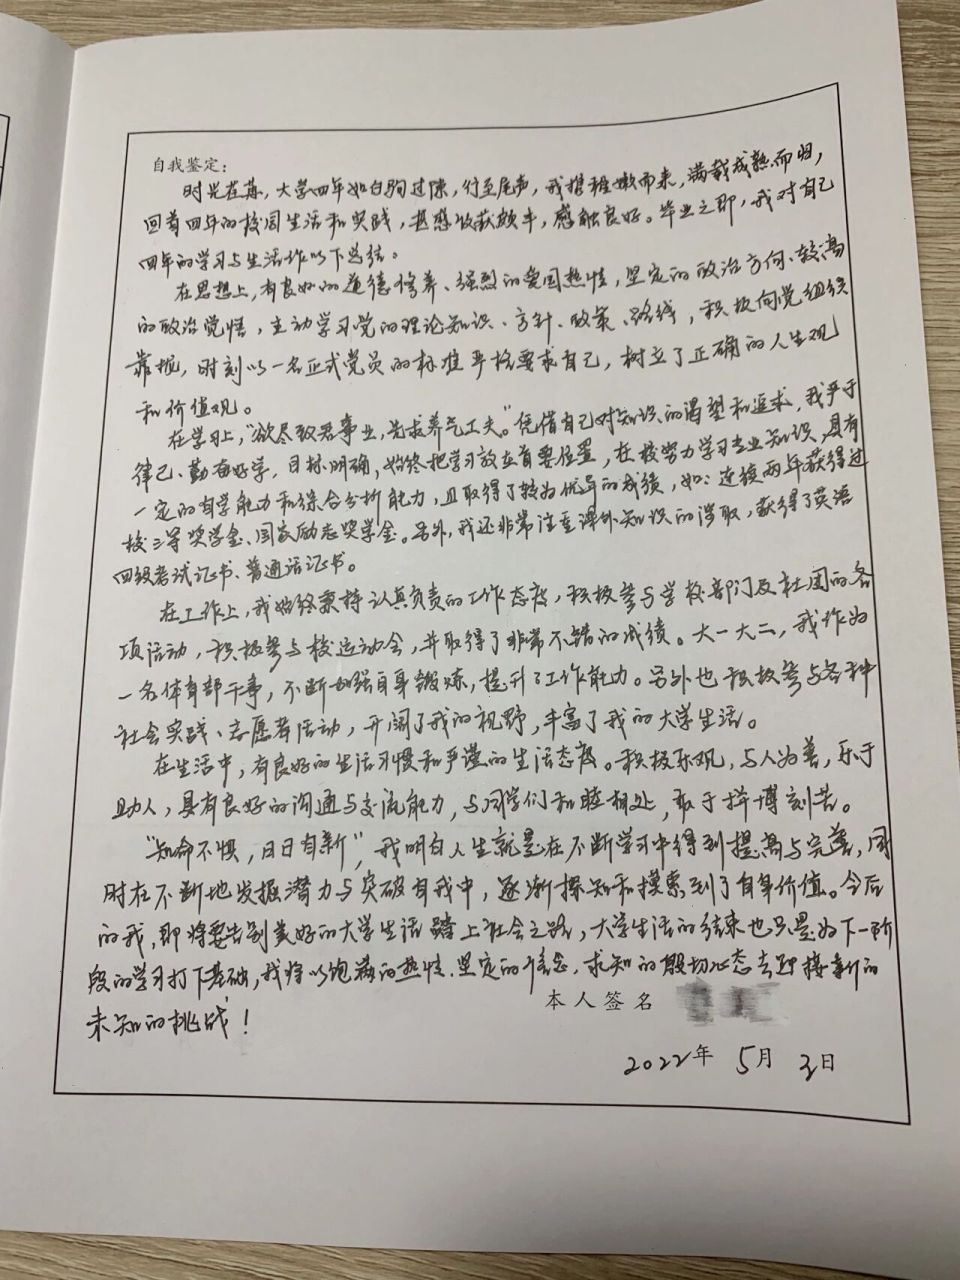 自我鉴定：
时光荏苒，大学四年如白驹过隙，行至尾声，我携稚嫩而来，满载成熟而归，
回首四年的校园生活和实践，甚感收获颇丰，感触良好。毕业之即，我对自己
四年的学习与生活作以下总结。
在思想上，有良好的道德修养、强烈的爱国热情，坚定的政治方向、较高
的政治觉悟，主动学习党的理论知识、方针、政策、路线，积极向党组织
靠拢，时刻以一名正式党员的标准严格要求自己，树立了正确的人生观
和价值观。
在学习上，“欲尽致君事业，先求养气工夫。”凭借自己对知识的渴望和追求，我严于
律己、勤奋好学，目标明确，始终把学习放在首要位置，在校努力学习专业知识，具有
一定的自学能力和综合分析能力，且取得了较为优异的成绩，如：连续两年获得过
校三等奖学金、国家励志奖学金。另外，我还非常注重课外知识的涉取，获得了英语
四级考试证书、普通话证书。
在工作上，我始终秉持认真负责的工作态度，积极参与学校部门及社团的各
项活动，积极参与校运动会，并取得了非常不错的成绩。大一大二，我作为
一名体育部干事，不断加强自身锻炼，提升了工作能力。另外也积极参与各种
社会实践、志愿者活动，开阔了我的视野，丰富了我的大学生活。
在生活中，有良好的生活习惯和严谨的生活态度。积极乐观，与人为善，乐于
助人，具有良好的沟通与交流能力，与同学们和睦相处，敢于拼博刻苦。
“知命不惧，日日自新”，我明白人生就是在不断学习中得到提高与完善，同
时在不断地发掘潜力与突破自我中，逐渐探知和摸索到了自身价值。今后
的我，即将要告别美好的大学生活踏上社会之路，大学生活的结束也只是为下一阶
段的学习打下基础，我将以饱满的热情、坚定的信念，求知的殷切心态去迎接新的
本人签名
未知的挑战！
2022年 5月 3日